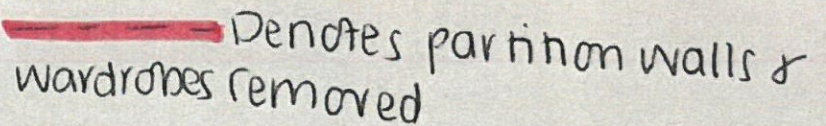 Denotes partition walls &
wardrobes removed